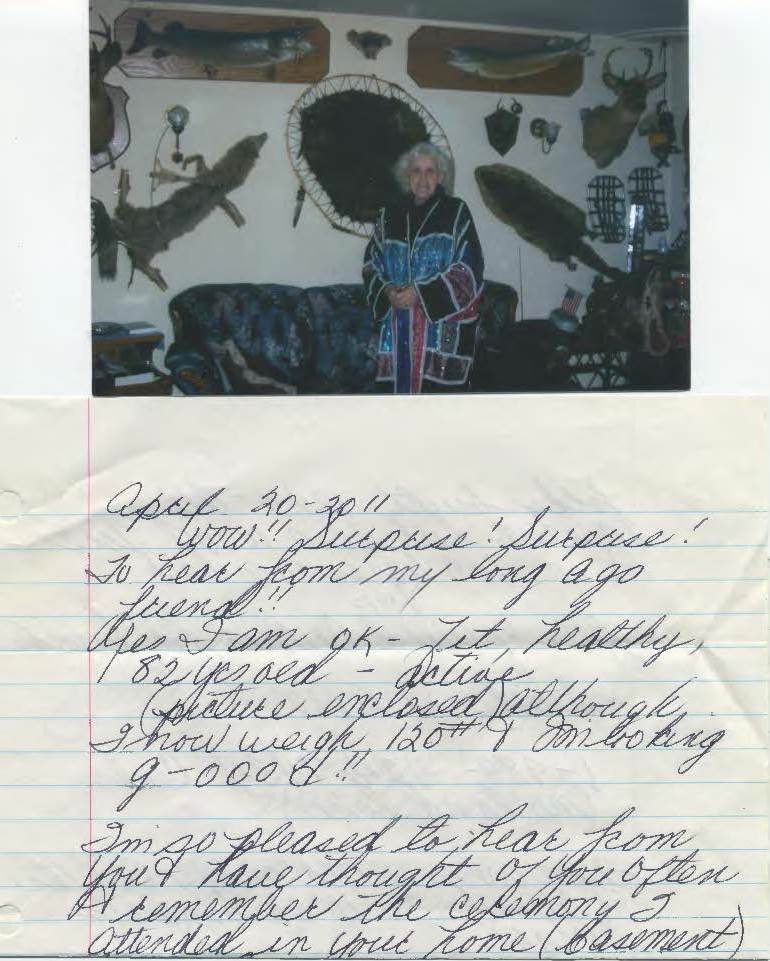 April 20-2011
Wow!! Surprise! Surprise!
To hear from my long ago
friend!!
Yes I am OK - Fit, healthy,
82 yrs old - active
(picture enclosed) although
I now weigh 120# & I'm looking
g-000d!!
I'm so pleased to hear from
you & have thought of you often
& remember the ceremony I
attended in your home (basement)